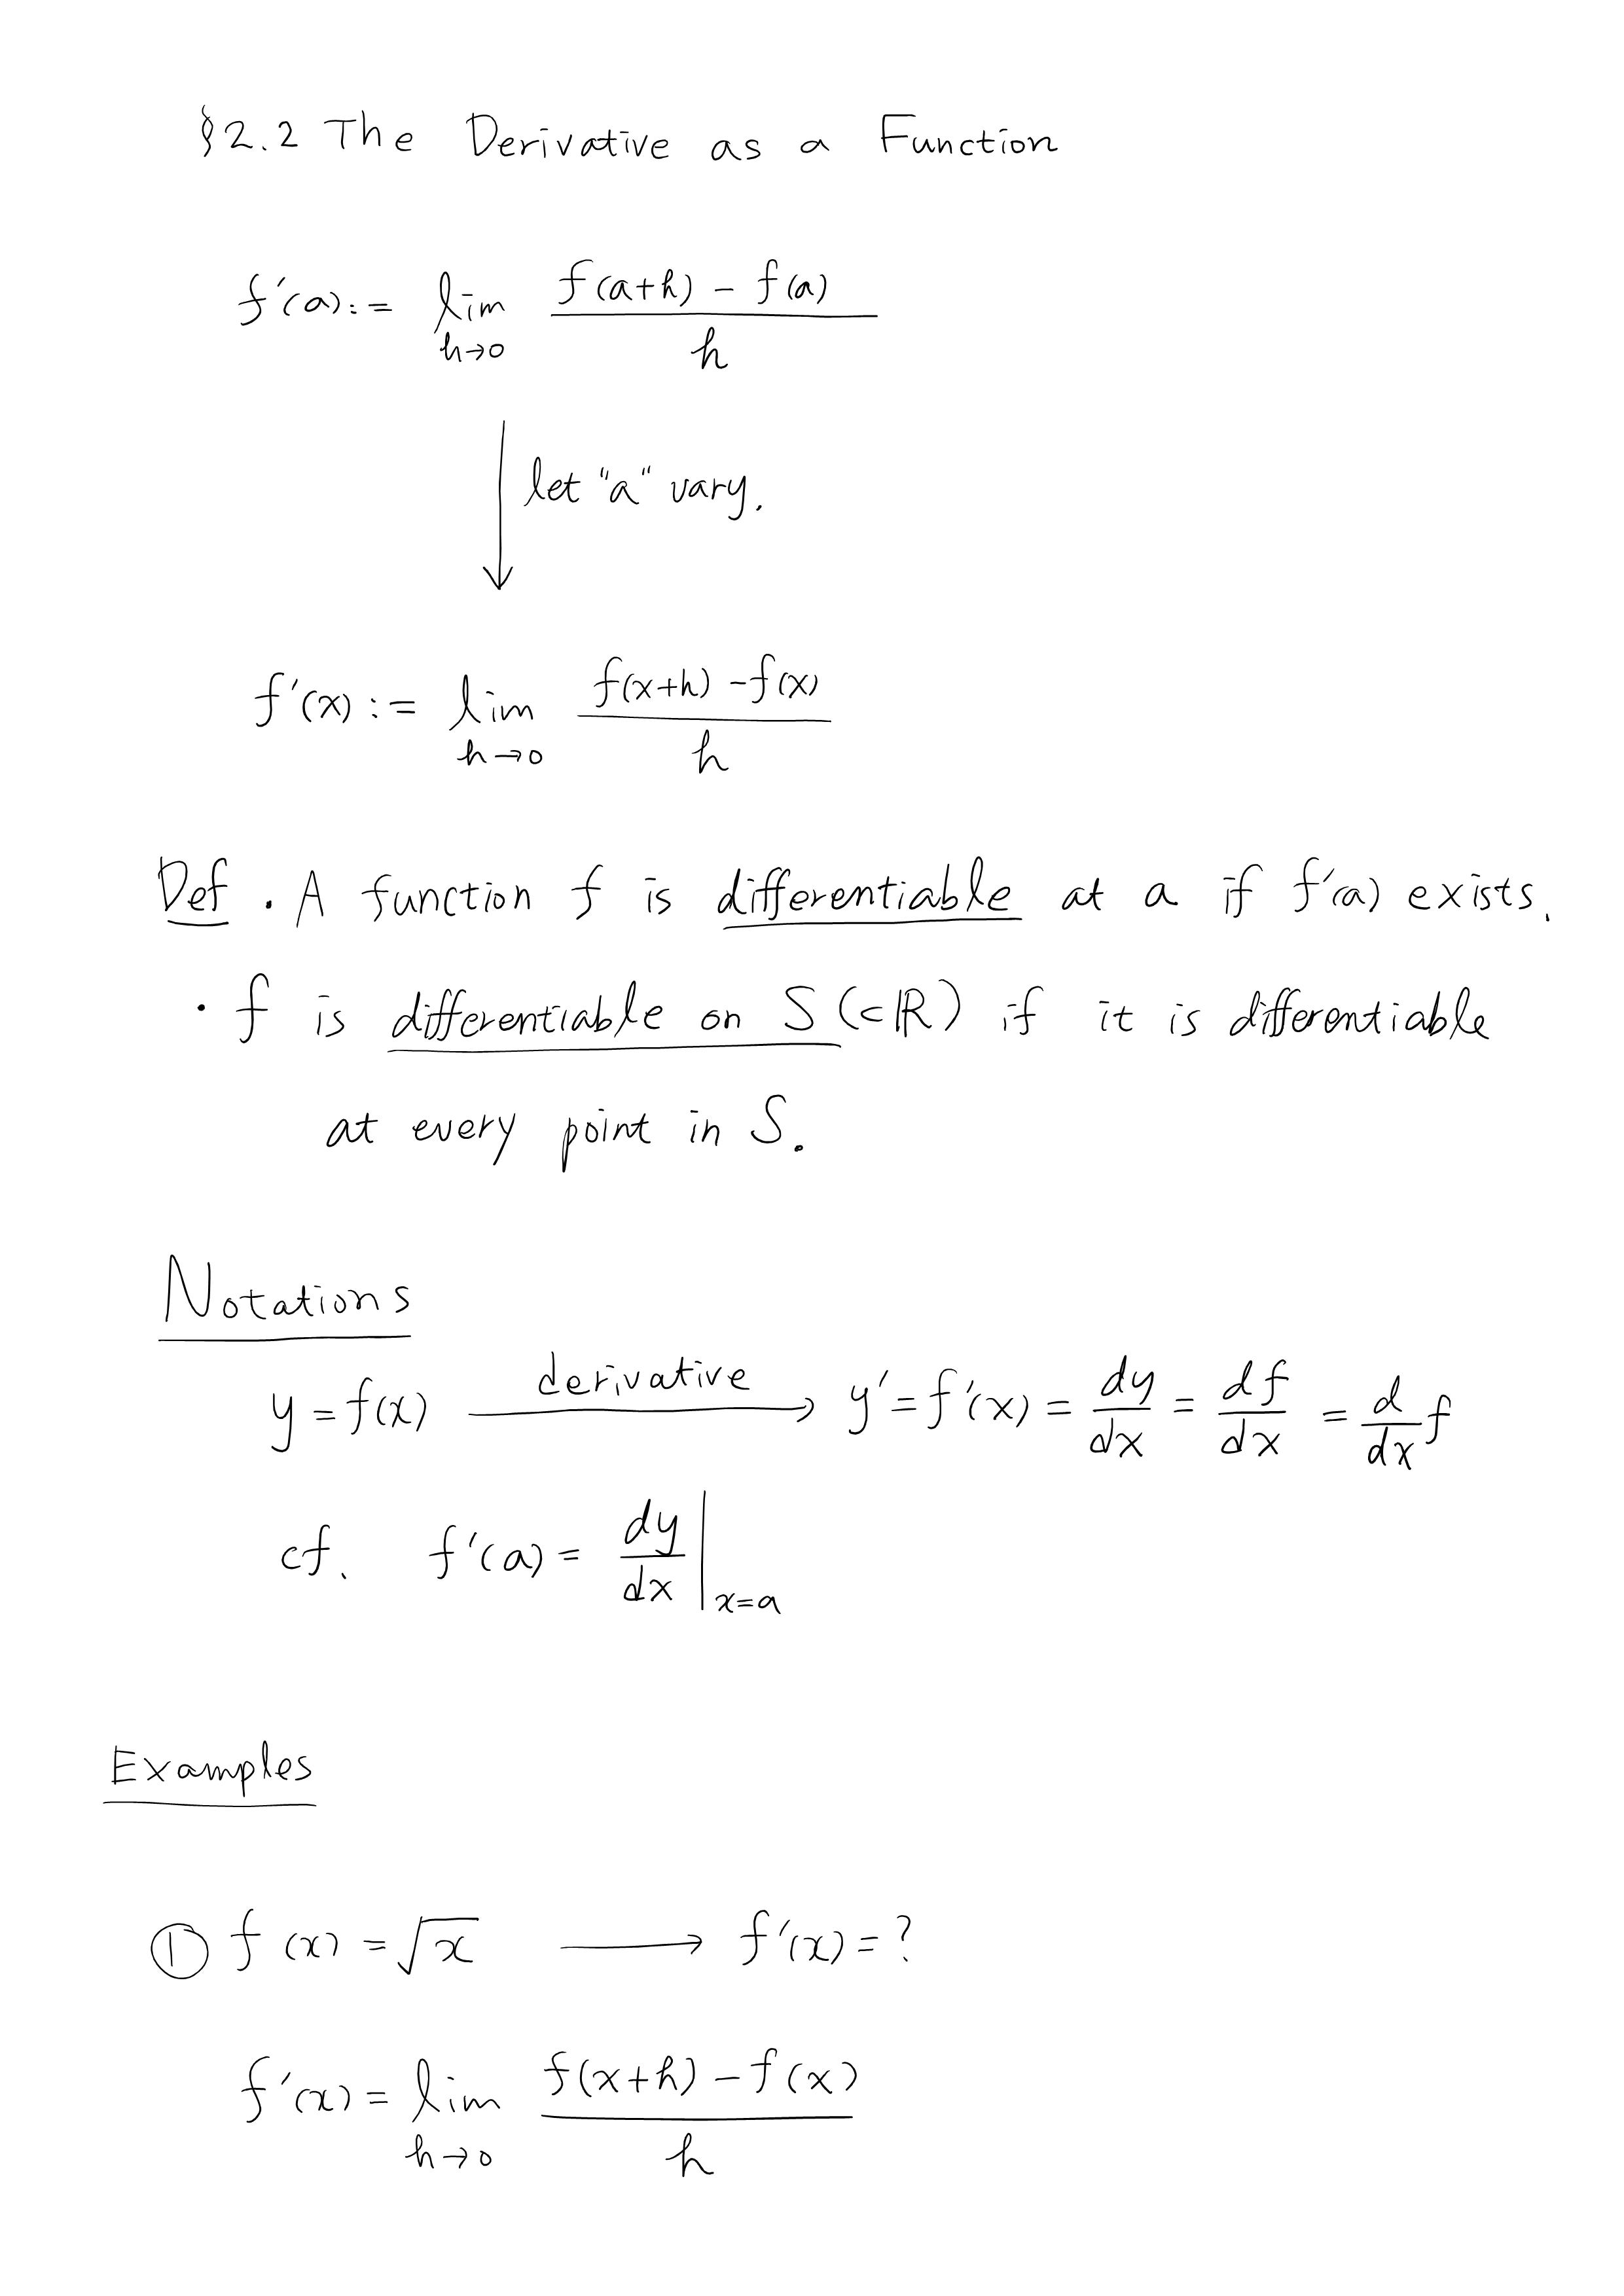 §2.2 The Derivative as a Function
f'(a) := lim_{h→0} \frac{f(a+h) - f(a)}{h}
↓ let "a" vary.
f'(x) := lim_{h→0} \frac{f(x+h) - f(x)}{h}
Def · A function f is differentiable at a if f'(a) exists.
· f is differentiable on S (⊂ℝ) if it is differentiable
at every point in S.
Notations
y = f(x) \xrightarrow{derivative} y' = f'(x) = \frac{dy}{dx} = \frac{df}{dx} = \frac{d}{dx} f
cf. f'(a) = \frac{dy}{dx} |_{x=a}
Examples
① f(x) = √x ⟶ f'(x) = ?
f'(x) = lim_{h→0} \frac{f(x+h) - f(x)}{h}